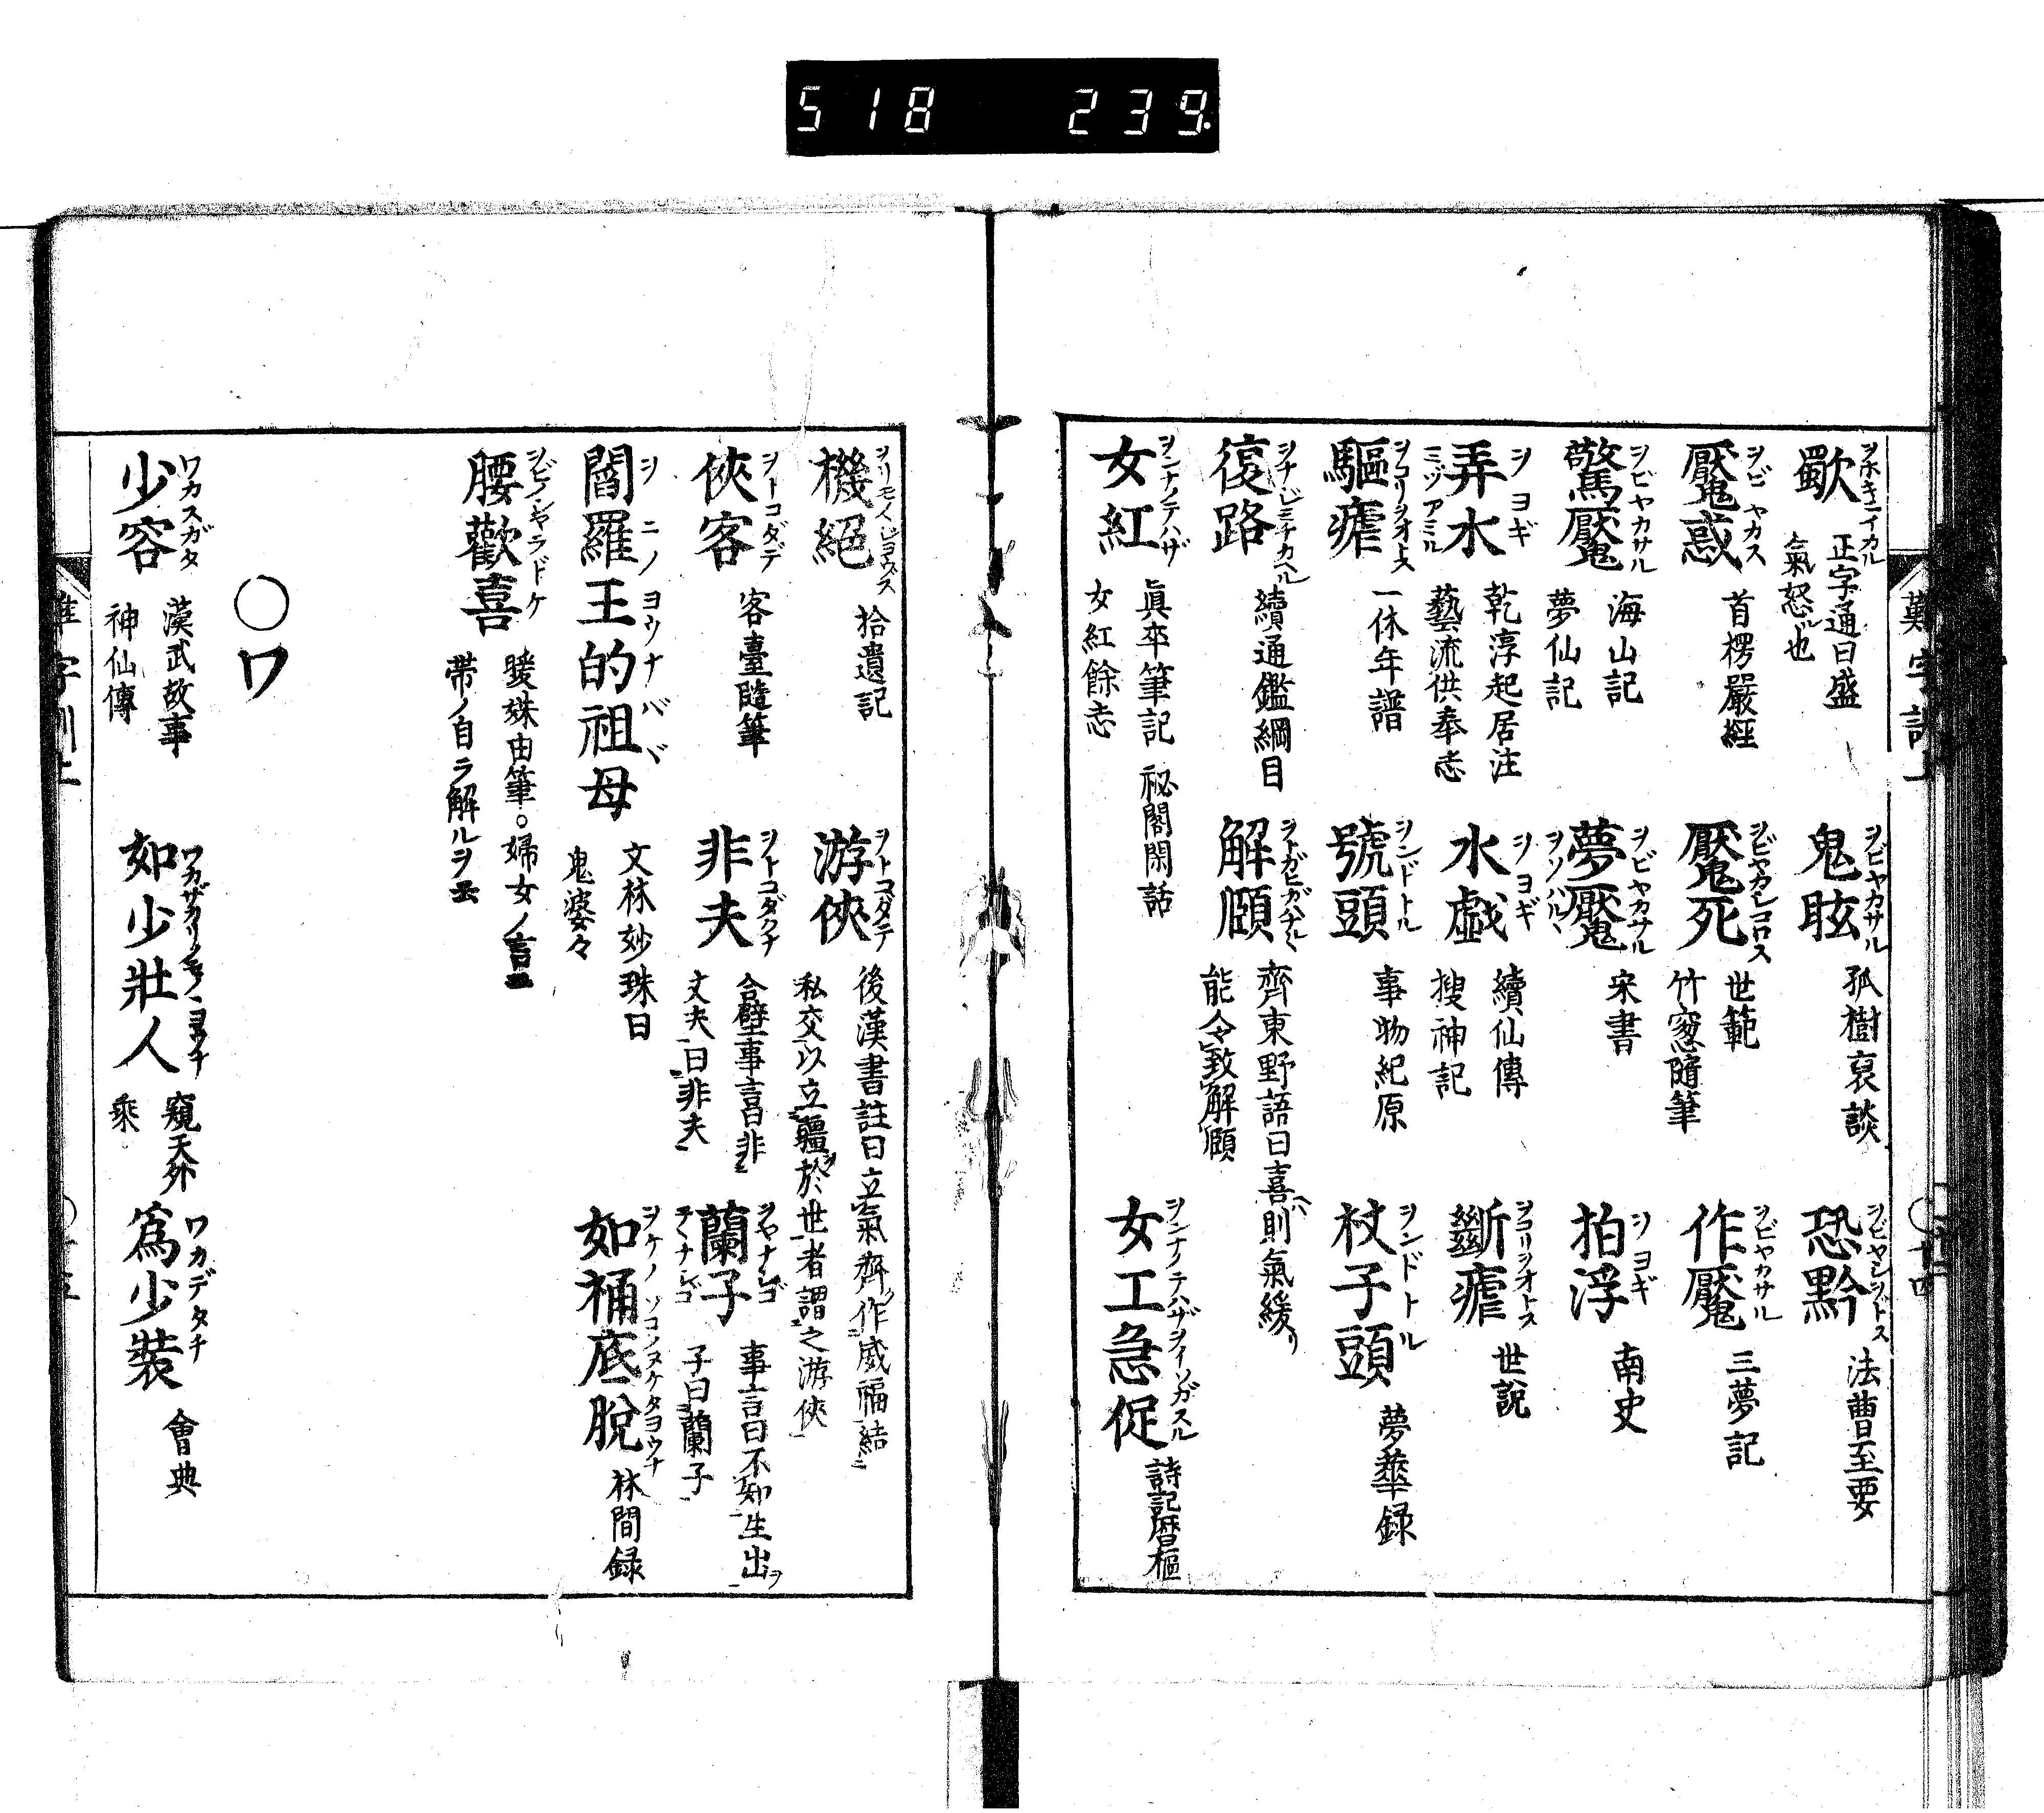 518 239.
歜 ヲホキニイカル 正字通曰盛氣怒也
鬼眩 ヲビヤカサル 孤樹裒談
恐黔 ヲビヤシヲトス 法曹至要
魘惑 ヲビヤカス 首楞嚴經
魘死 ヲビヤカシコロス 世範 竹窓隨筆
作魘 ヲビヤカサル 三夢記
驚魘 ヲビヤカサル 海山記 夢仙記
夢魘 ヲビヤカサル ヲソハルヽ 宋書
拍浮 ヲヨギ 南史
弄水 ヲヨギ ミヅアミル 乾淳起居注 藝流供奉志
水戯 ヲヨギ 續仙傳 搜神記
斷瘧 ヲコリヲオトス 世説
驅瘧 ヲコリヲオトス 一休年譜
號頭 ヲンドトル 事物紀原
杖子頭 ヲンドトル 夢華録
復路 ヲナジミチカヘル 續通鑑綱目
解頤 ヲトガヒガハナルヽ 齊東野語曰喜則氣緩能令致解頤
女紅 ヲンナノテハザ 眞率筆記 祕閣閑話 女紅餘志
女工急促 ヲンナノテハザヲイソガスル 詩記暦樞
機絕 ヲリモノジヨウズ 拾遺記
游俠 ヲトコダテ 後漢書註曰立氣齊作威福結私交以立疆於世者謂之游俠
俠客 ヲトコダデ 客臺隨筆
非夫 ヲトコダクナ 合璧事言曰非丈夫曰非夫
蘭子 ヲヤナシゴ テヽナシゴ 事言曰不知生出子曰蘭子
閻羅王的祖母 ヲニノヨウナバヾ 文林妙珠曰鬼婆々
如桶底脫 ヲケノソコノヌケタヨウナ 林間録
腰歡喜 ヲビノシヤラドケ 暖姝由筆○婦女ノ言ニ帶ノ自ラ解ルヲ云
○ワ
少容 ワカスガタ 漢武故事 神仙傳
如少壯人 窺天外乘
爲少裝 ワカデタチ 會典